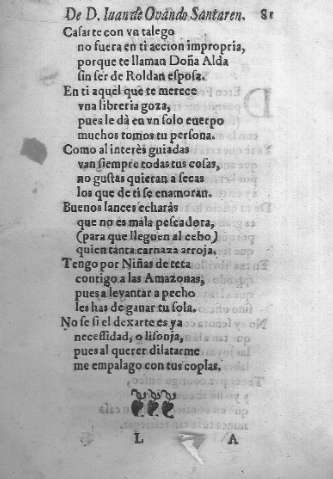 De D. Iuan de Ovando Santaren. 81
Casarte con vn talego
no fuera en ti accion impropria,
porque te llaman Doña Alda
sin ser de Roldan esposa.
En ti aquel que te merece
vna libreria goza,
pues le dà en vn solo cuerpo
muchos tomos tu persona.
Como al interès guiadas
van siempre todas tus cosas,
no gustas quieran a secas
los que de ti se enamoran.
Buenos lances echaràs
que no es mala pescadora,
(para que lleguen al cebo)
quien tanta carnaza arroja.
Tengo por Niñas de teta
contigo a las Amazonas,
pues a levantar a pecho
les has de ganar tu sola.
No se si el dexarte es ya
necessidad, o lisonja,
pues al querer dilatarme
me empalago con tus coplas.
L A